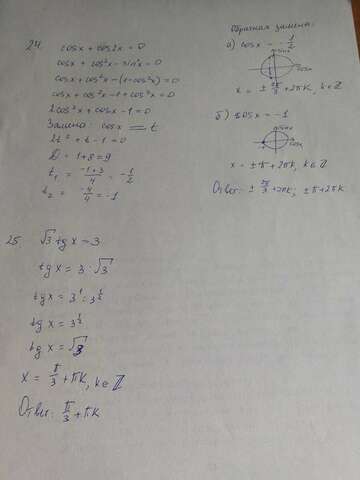 24.
cosx + cos2x = 0
cosx + cos²x - sin²x = 0
cosx + cos²x - (1 - cos²x) = 0
cosx + cos²x - 1 + cos²x = 0
2cos²x + cosx - 1 = 0
Замена: cosx = t
2t² + t - 1 = 0
D = 1 + 8 = 9
t₁ = (-1+3)/4 = -1/2
t₂ = -4/4 = -1
Обратная замена:
а) cosx = -1/2
x = ± 2π/3 + 2πk, k∈ℤ
б) cosx = -1
x = ±π + 2πk, k∈ℤ
Ответ: ± π/3 + 2πk; ±π + 2πk
25
√3 tgx = 3
tgx = 3 : √3
tgx = 3¹ : 3^½
tgx = 3^½
tgx = √3
x = π/3 + πk, k∈ℤ
Ответ: π/3 + πk